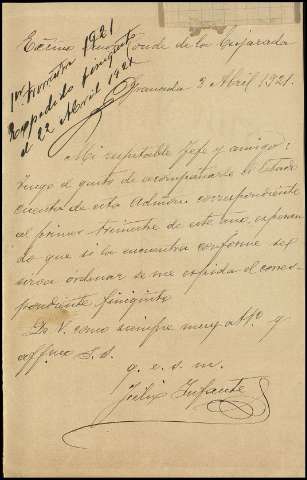 Excmo Señor Conde de la Cañada
Granada 3 Abril 1921.
1er Trimestre 1921
Expedido finiquito
el 22 Abril 1921
Mi respetable Jefe y amigo:
Tengo el gusto de acompañarle la
cuenta de esta Admón correspondiente
al primer trimestre de este año, esperan
do que si la encuentra conforme se
sirva ordenar se me expida el corres-
pondiente finiquito
De V. como siempre muy atto. y
affmo S.S.
q. e. s. m.
Félix Infante